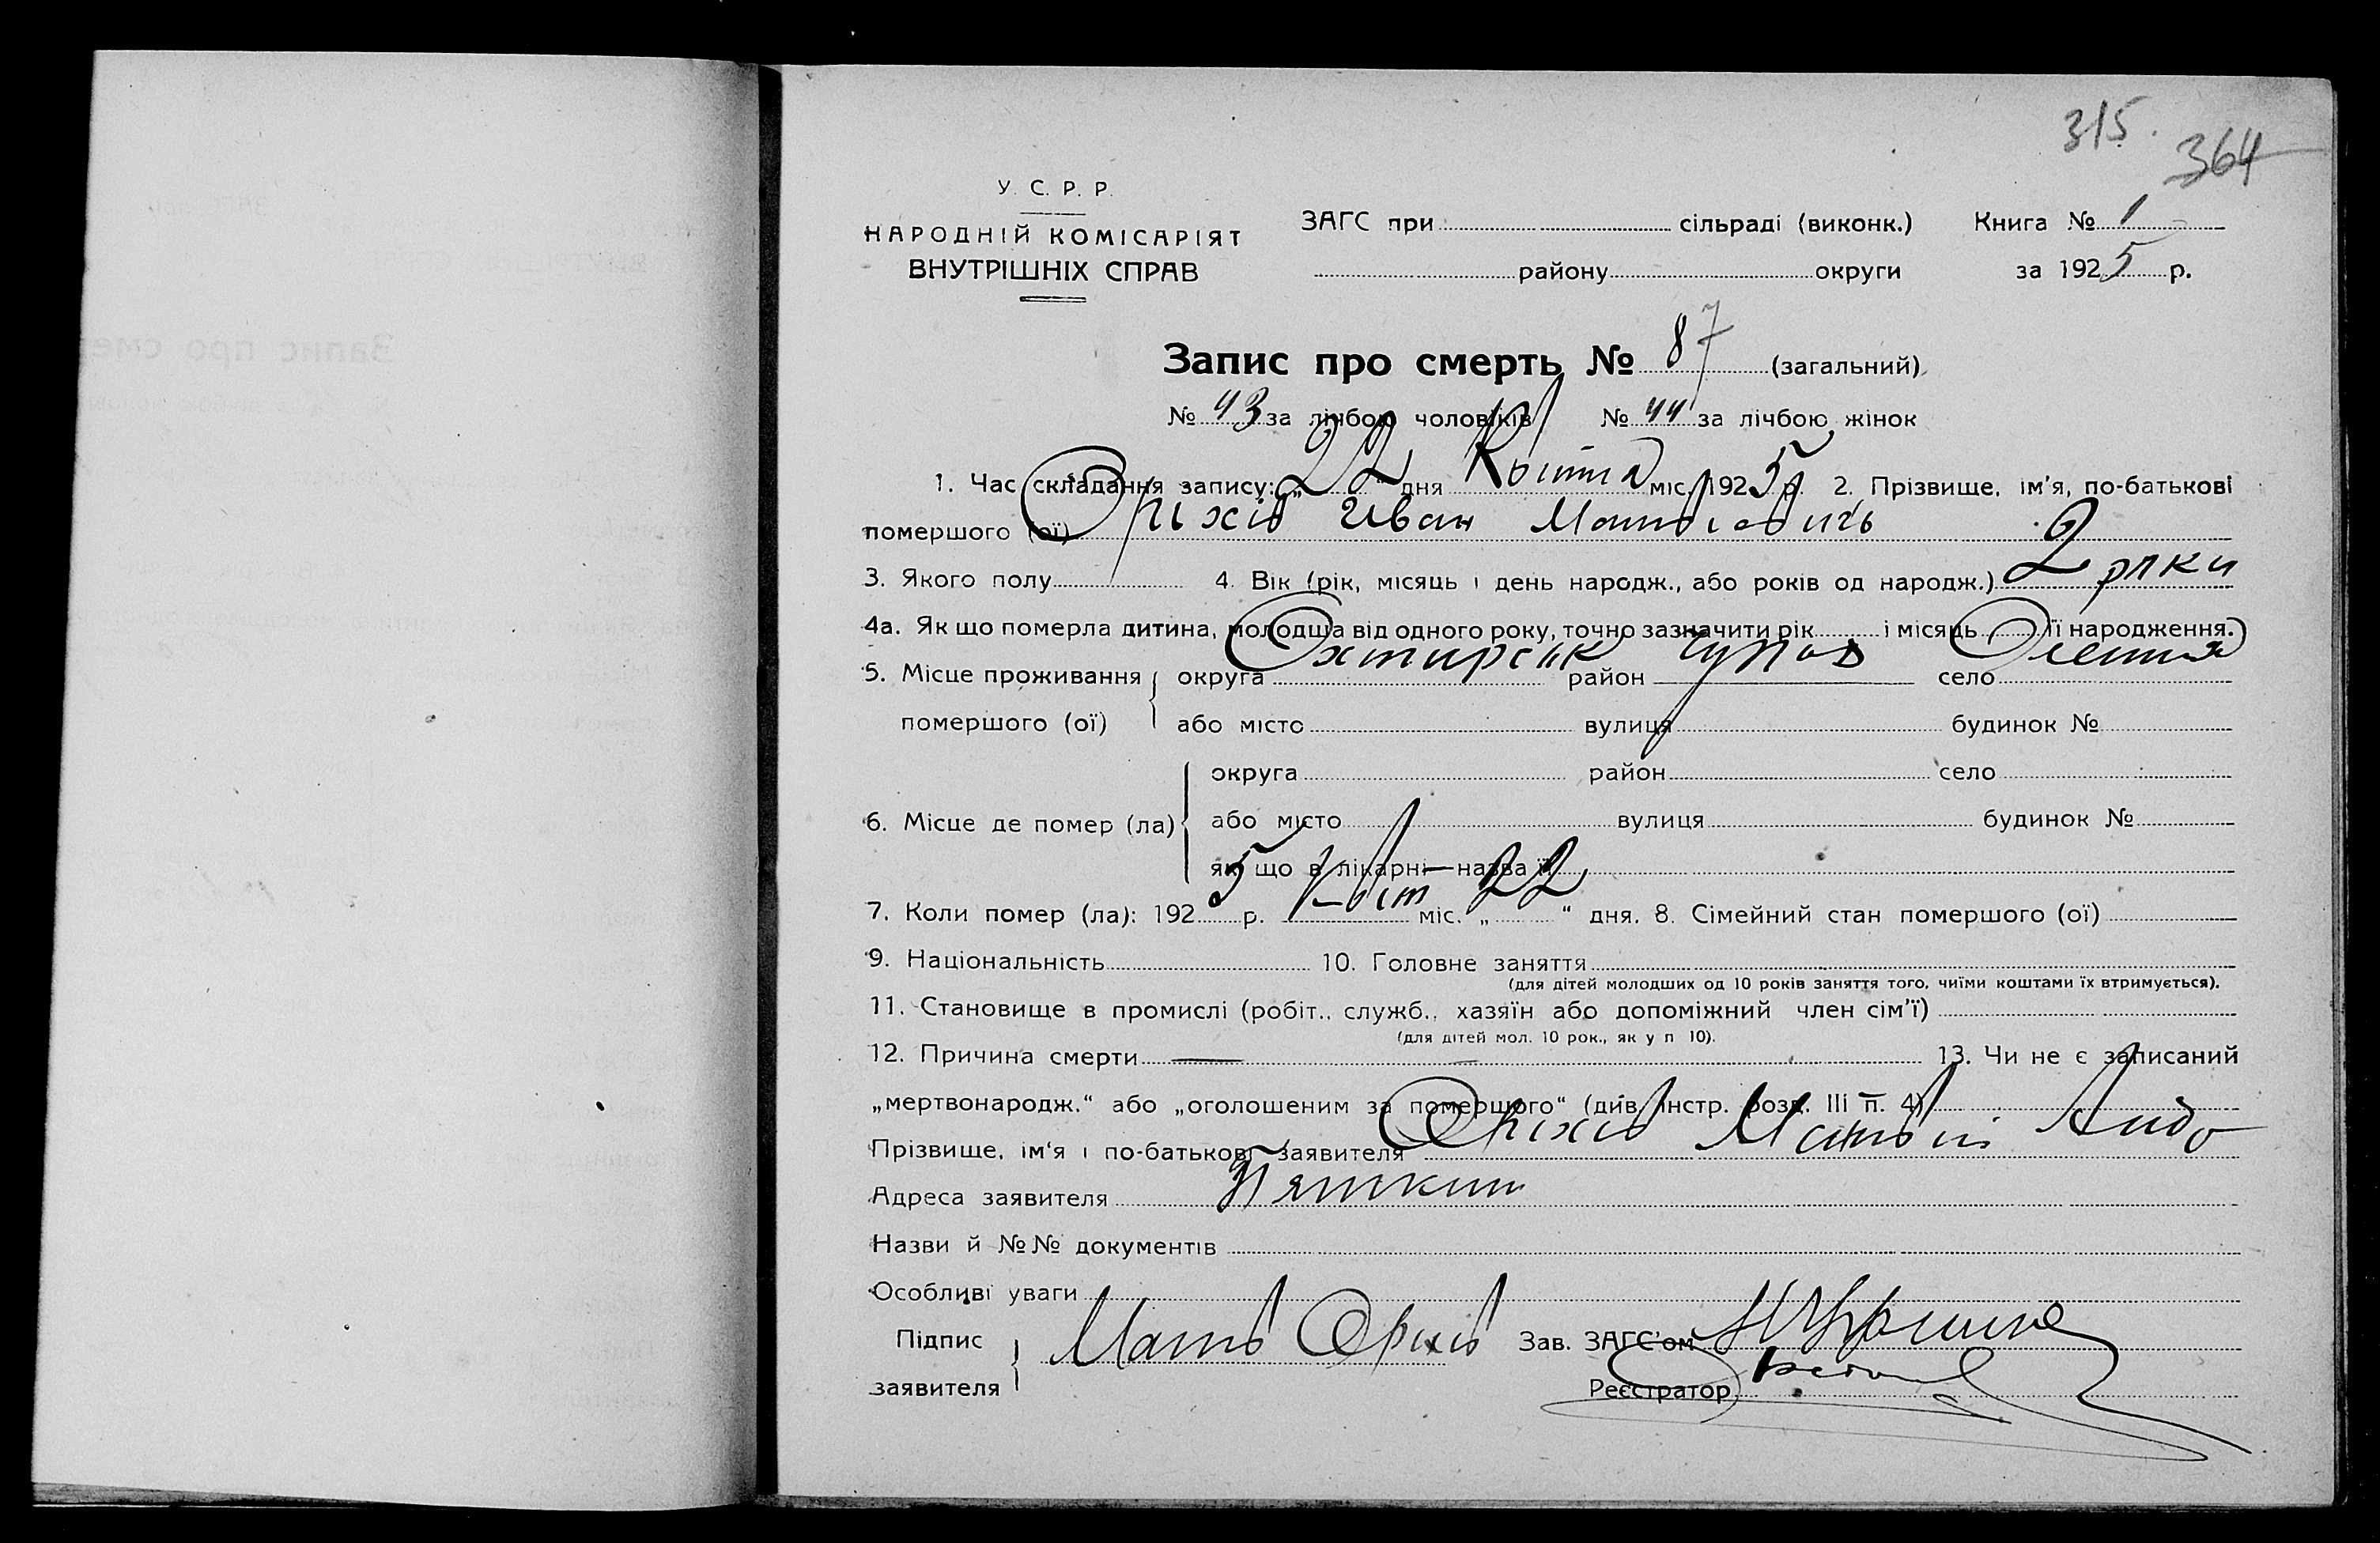 315.
364
У. С. Р. Р.
НАРОДНІЙ КОМІСАРІЯТ
ВНУТРІШНІХ СПРАВ
ЗАГС при сільраді (виконк.) Книга № 1
району округи за 1925 р.
Запис про смерть № 87 (загальний)
№ 43 за лічбою чоловіків № 44 за лічбою жінок
1. Час складання запису: „22“ дня міс. 1925 р. 2. Прізвище, ім'я, по-батькові
помершого (ої) Оріхів Иван
3. Якого полу 4. Вік (рік, місяць і день народж., або років од народж.) 2 роки
4а. Як що померла дитина, молодша від одного року, точно зазначити рік і місяць її народження.
5. Місце проживання помершого (ої) округа район село
або місто вулиця будинок №
6. Місце де помер (ла) округа район село
або місто вулиця будинок №
як що в лікарні—назва її
7. Коли помер (ла): 1925 р. Квіт міс. „22“ дня. 8. Сімейний стан помершого (ої)
9. Національність 10. Головне заняття
(для дітей молодших од 10 років заняття того, чиїми коштами їх втримується).
11. Становище в промислі (робіт., служб., хазяїн або допоміжний член сім'ї)
(для дітей мол. 10 рок., як у п 10).
12. Причина смерти — 13. Чи не є записаний
„мертвонародж.“ або „оголошеним за помершого“ (див. інстр. розд. III п. 4)
Прізвище, ім'я і по-батькові заявителя Оріхів Матвій
Адреса заявителя
Назви й №№ документів
Особливі уваги
Підпис заявителя Матв Оріхів Зав. ЗАГС'ом
Реєстратор